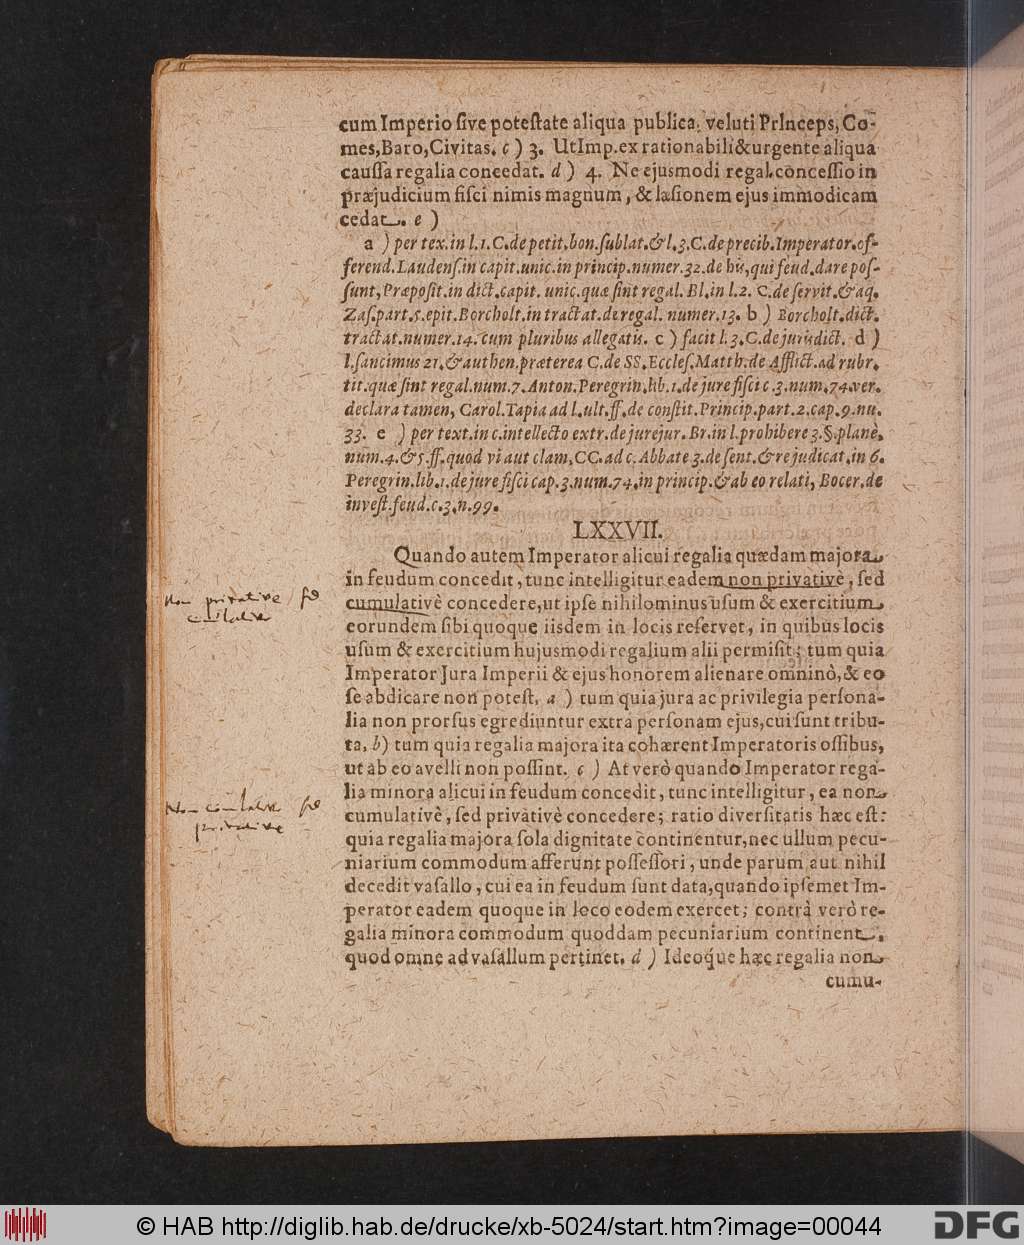 cum Imperio ſive poteſtate aliqua publica, veluti PrInceps, Co-
mes, Baro, Civitas. c ) 3. Ut Imp. ex rationabili & urgente aliqua
cauſſa regalia concedat. d ) 4. Ne ejusmodi regal. conceſſio in
præjudicium fiſci nimis magnum, & læſionem ejus immodicam
cedat. e )
a ) per tex. in l. 1. C. de petit. bon. ſublat. & l. 3. C. de precib. Imperator. of-
ferend. Laudenſ. in capit. unic. in princip. numer. 32. de his, qui feud. dare poſ-
ſunt, Præpoſit. in dict. capit. unic. quæ ſint regal. Bl. in l. 2. C. de ſervit. & aq.
Zaſ. part. 5. epit. Borcholt. in tractat. de regal. numer. 13. b ) Borcholt. dict.
tractat. numer. 14. cum pluribus allegatis. c ) facit l. 3. C. de jurisdict. d )
l. ſancimus 21. & authen. præterea C. de SS. Eccleſ. Matth. de Afflict. ad rubr.
tit. quæ ſint regal. num. 7. Anton. Peregrin. lib. 1. de jure fiſci c. 3. num. 74. ver.
declara tamen, Carol. Tapia ad l. ult. ff. de conſtit. Princip. part. 2. cap. 9. nu.
33. e ) per text. in c. intellecto extr. de jurejur. Br. in l. prohibere 3. §. planè.
num. 4. & 5. ff. quod vi aut clam, CC. ad c. Abbate 3. de ſent. & re judicat. in 6.
Peregrin. lib. 1. de jure fiſci cap. 3. num. 74. in princip. & ab eo relati, Bocer. de
inveſt. feud. c. 3. n. 99.
LXXVII.
Quando autem Imperator alicui regalia quædam majora
in feudum concedit, tunc intelligitur eadem non privativè, ſed
cumulativè concedere, ut ipſe nihilominus uſum & exercitium
eorundem ſibi quoque iisdem in locis reſervet, in quibus locis
uſum & exercitium hujusmodi regalium alii permiſit; tum quia
Imperator Jura Imperii & ejus honorem alienare omninò, & eo
ſe abdicare non poteſt. a ) tum quia jura ac privilegia perſona-
lia non prorſus egrediuntur extra perſonam ejus, cui ſunt tribu-
ta, b ) tum quia regalia majora ita cohærent Imperatoris oſſibus,
ut ab eo avelli non poſſint. c ) At verò quando Imperator rega-
lia minora alicui in feudum concedit, tunc intelligitur, ea non
cumulativè, ſed privativè concedere; ratio diverſitatis hæc eſt:
quia regalia majora ſola dignitate continentur, nec ullum pecu-
niarium commodum afferunt poſſeſſori, unde parum aut nihil
decedit vaſallo, cui ea in feudum ſunt data, quando ipſemet Im-
perator eadem quoque in loco eodem exercet; contrà verò re-
galia minora commodum quoddam pecuniarium continent,
quod omne ad vaſallum pertinet. d ) Ideoque hæc regalia non
cumu-
Non privative / sed
cumulative
Non cumulative sed
privative
© HAB http://diglib.hab.de/drucke/xb-5024/start.htm?image=00044
DFG